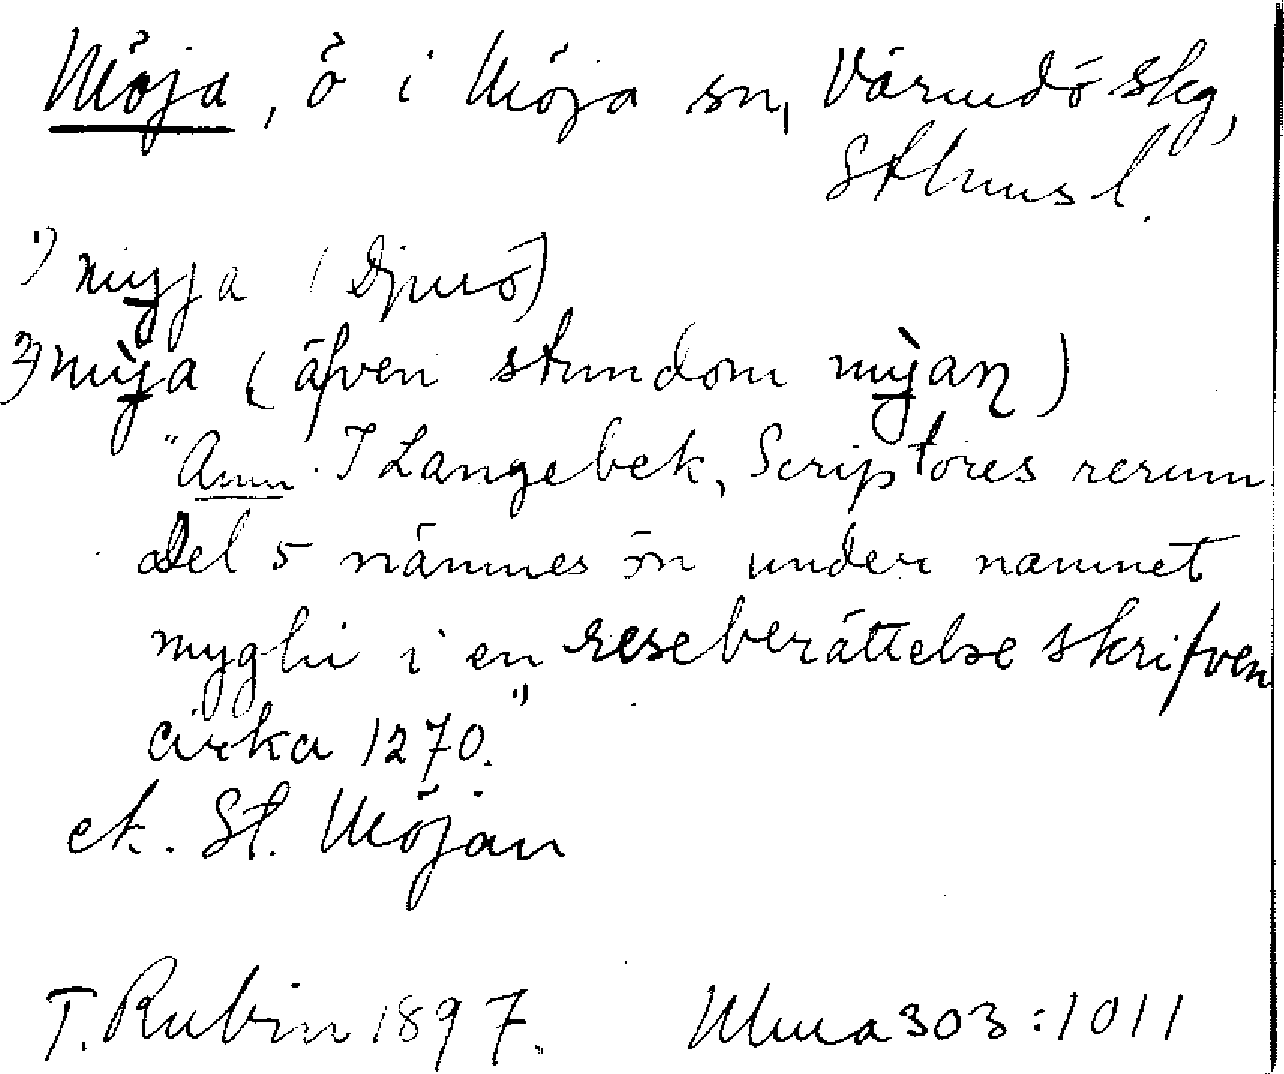 Möja, ö i Möja sn, Värmdö skg,
Sthms l.
1) myja (Djurö)
2) mỳja (äfven stundom mỳjaɳ)
"Anm. I Langebek, Scriptores rerum
Del 5 nämnes ön under namnet
myghi i en reseberättelse skrifven
cirka 1270."
ek. St. Möjan
T. Rubin 1897. Ulma 303:1011